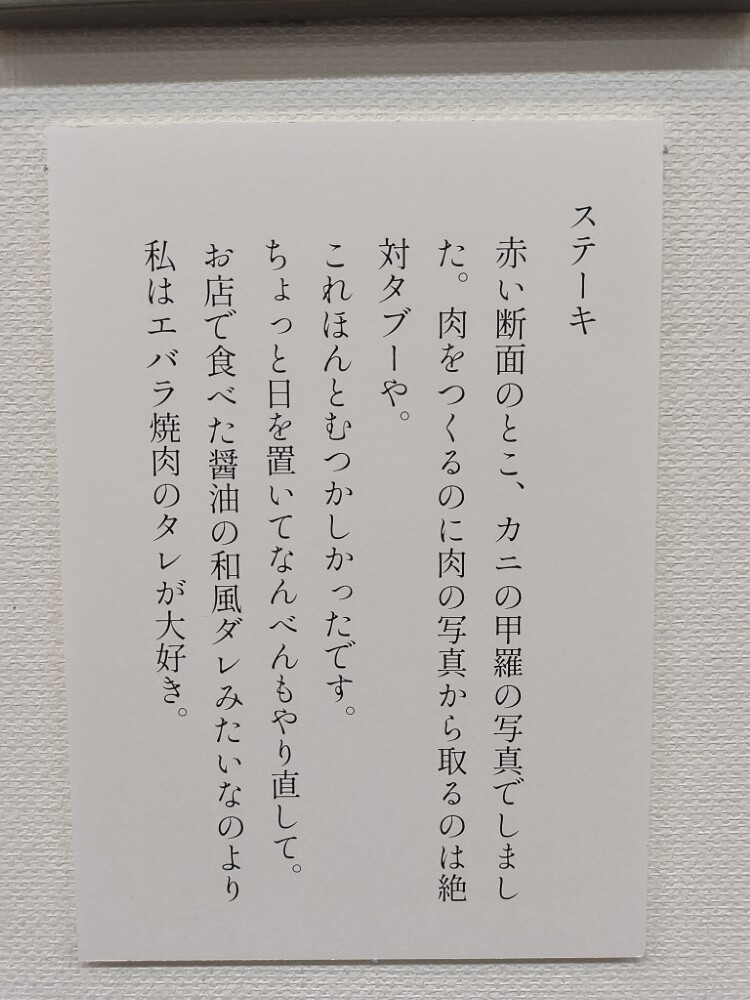 ステーキ
赤い断面のとこ、カニの甲羅の写真でしまし
た。肉をつくるのに肉の写真から取るのは絶
対タブーや。
これほんとむつかしかったです。
ちょっと日を置いてなんべんもやり直して。
お店で食べた醤油の和風ダレみたいなのより
私はエバラ焼肉のタレが大好き。